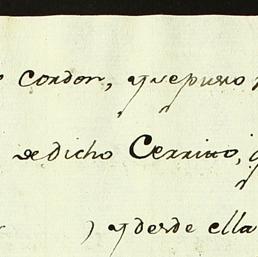 Cordon, y se puso
de dicho Cerrito,
y desde ella